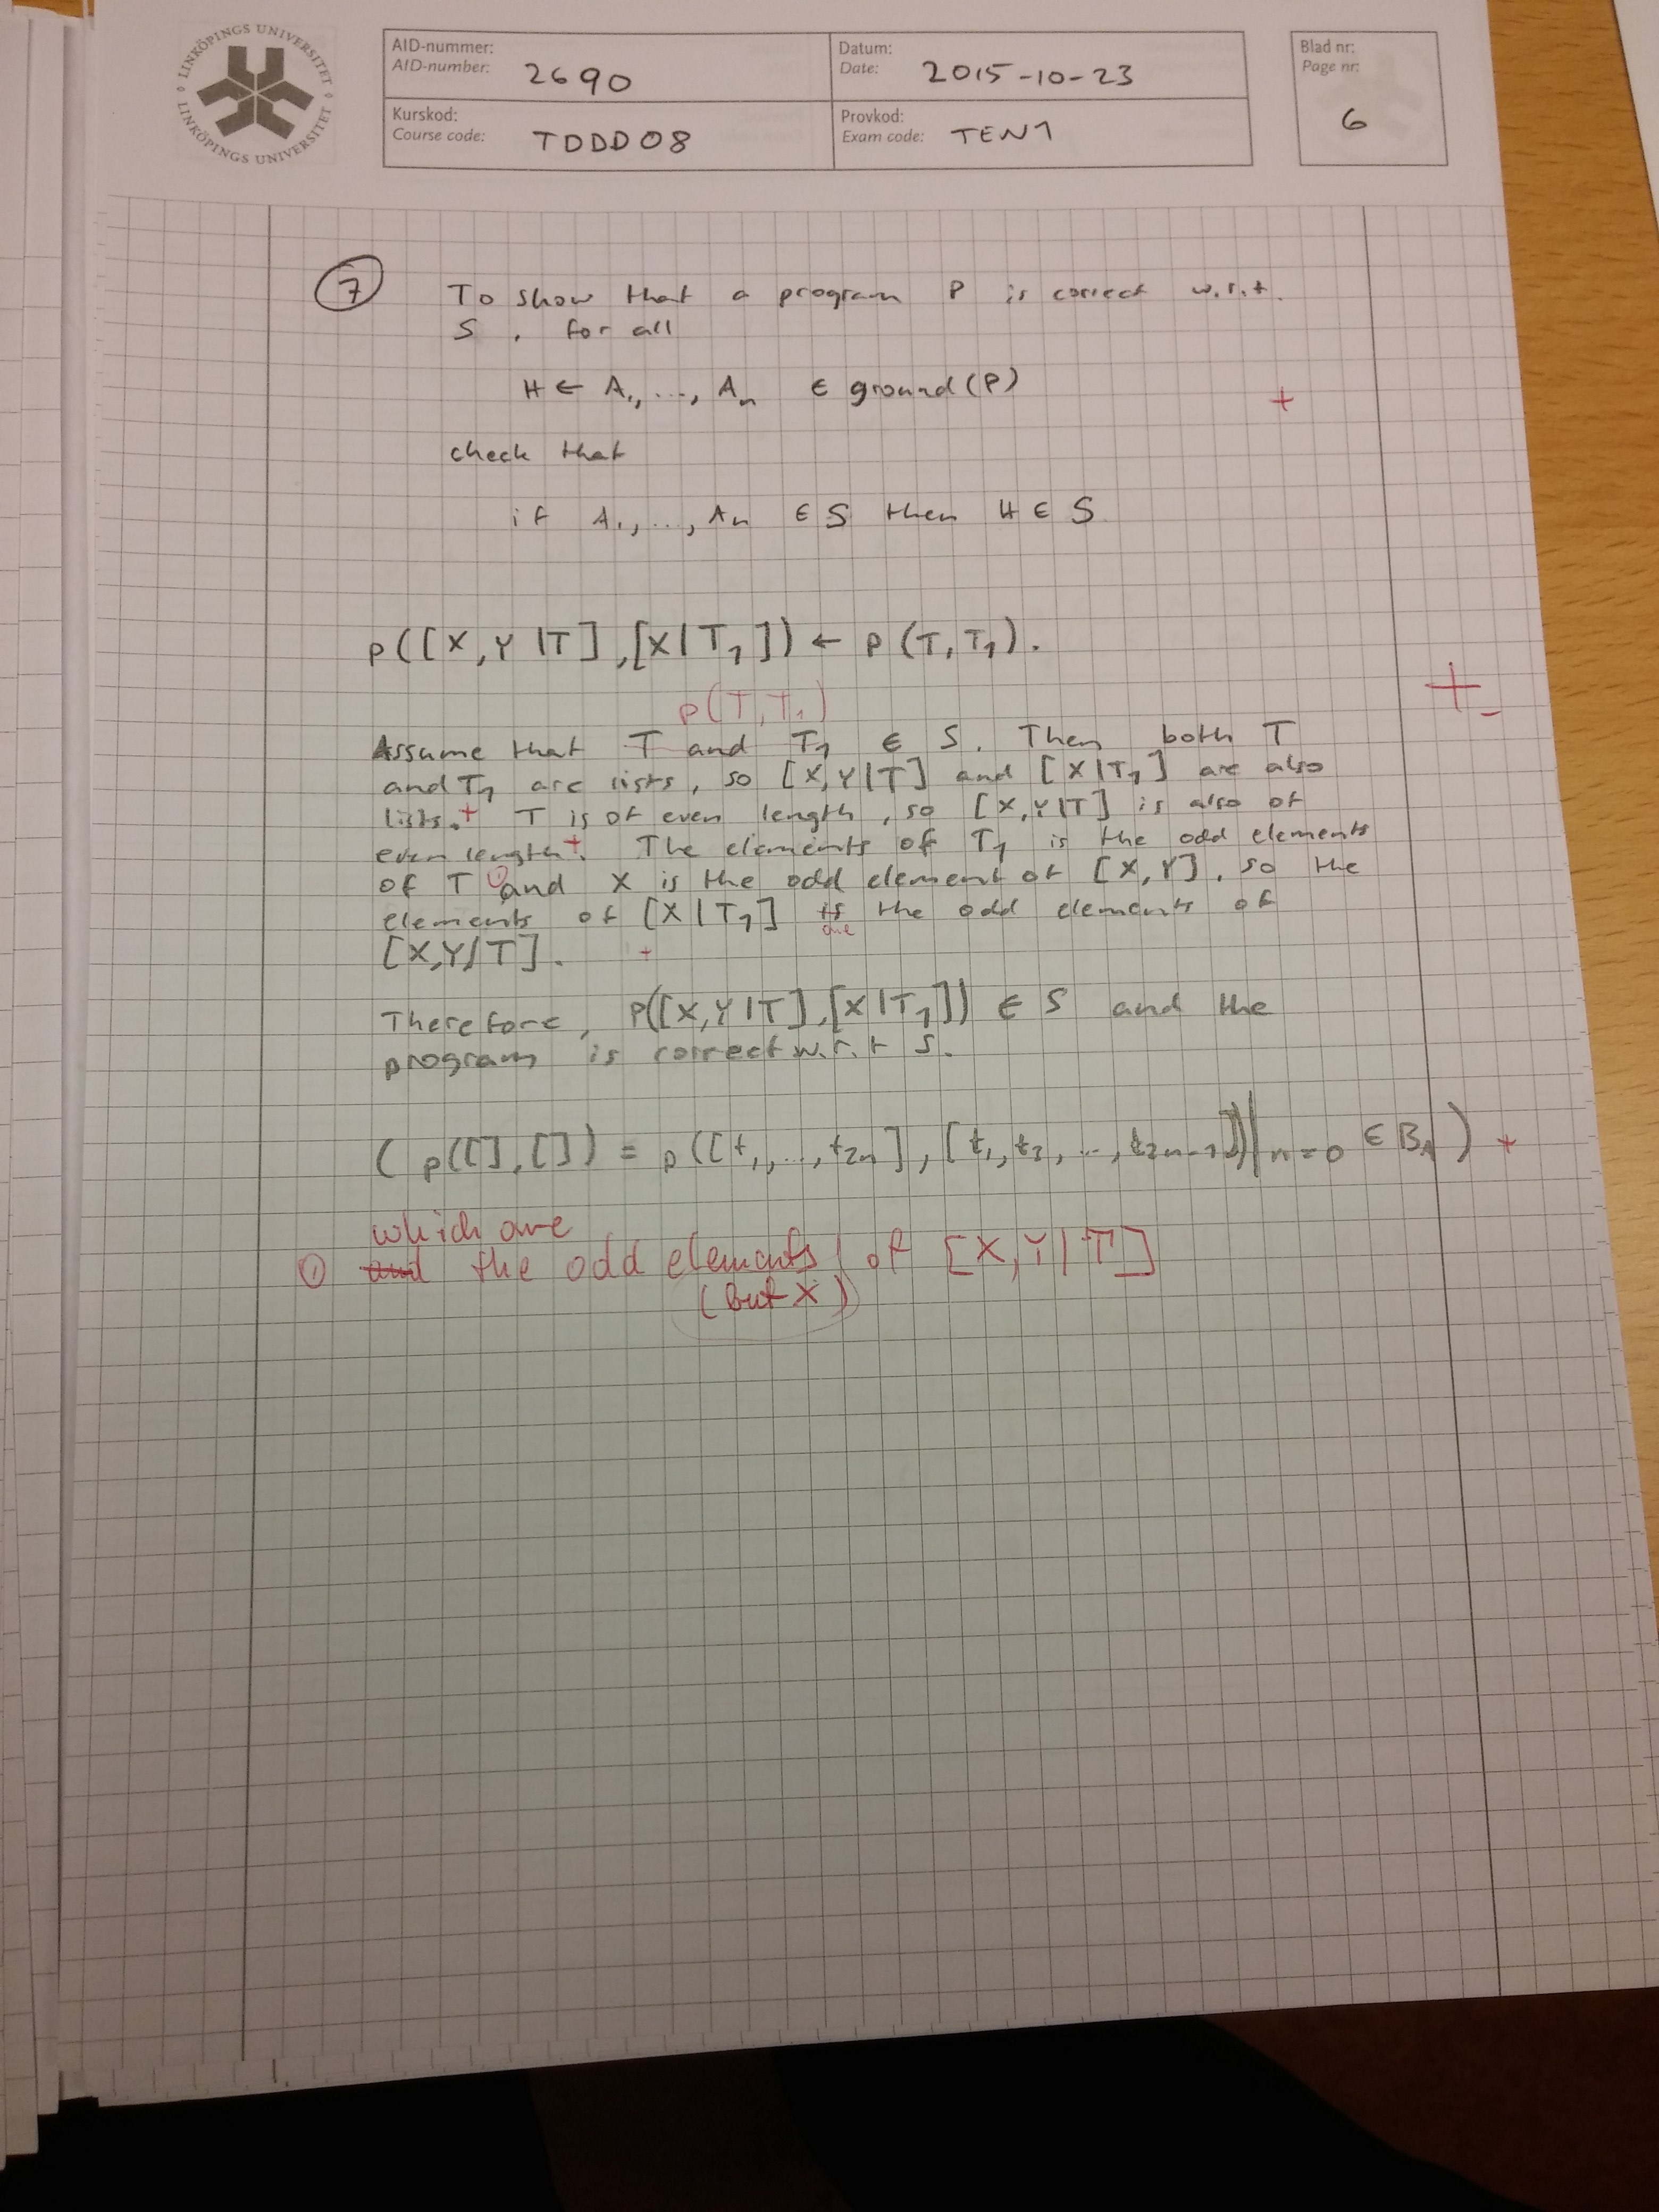 LINKÖPINGS UNIVERSITET
LINKÖPINGS UNIVERSITET
AID-nummer:
AID-number: 2690
Datum:
Date: 2015-10-23
Blad nr:
Page nr:
6
Kurskod:
Course code: TDDD08
Provkod:
Exam code: TEN1
7 To show that a program P is correct w.r.t.
S, for all
H ← A₁, ..., Aₙ ∈ ground(P)
+
check that
if A₁, ..., Aₙ ∈ S then H ∈ S
p([X,Y|T],[X|T₁]) ← p(T,T₁).
p(T,T₁)
+-
Assume that T and T₁ ∈ S. Then both T
and T₁ are lists, so [X,Y|T] and [X|T₁] are also
lists.+ T is of even length, so [X,Y|T] is also of
even length+. The elements of T₁ is the odd elements
of T ① and X is the odd element of [X,Y], so the
elements of [X|T₁] is the odd elements of
are
[X,Y|T]. +
Therefore, p([X,Y|T],[X|T₁]) ∈ S and the
program is correct w.r.t S.
( p([],[]) = p([t₁,...,t₂ₙ],[t₁,t₃,...,t₂ₙ₋₁])|ₙ₌₀ ∈ B_A ) +
which are
① and the odd elements of [X,Y|T]
(but X)